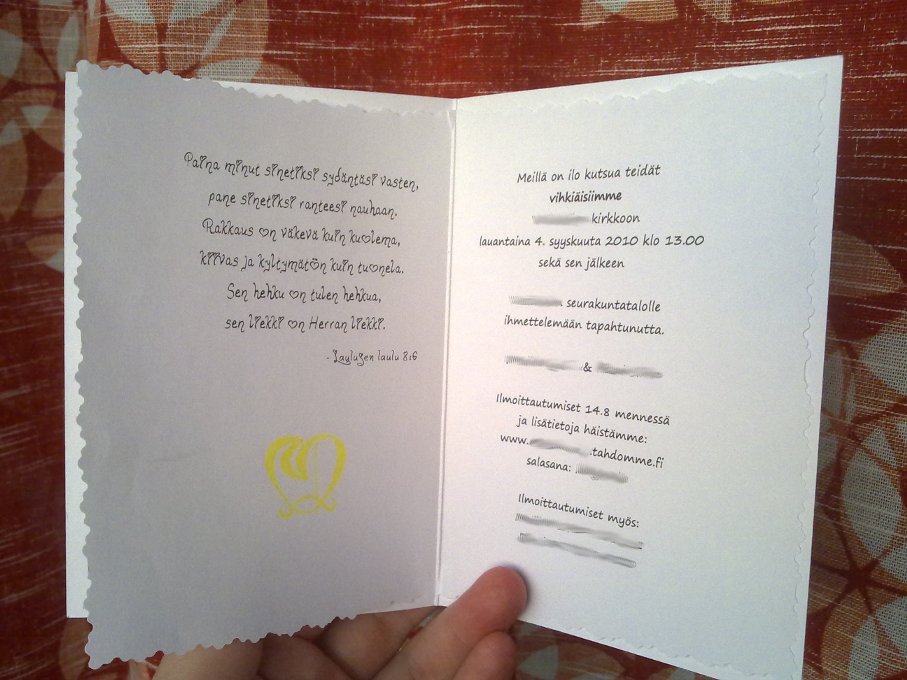 Paina minut sinetiksi sydäntäsi vasten,
pane sinetiksi ranteesi nauhaan.
Rakkaus on väkevä kuin kuolema,
kiivas ja kyltymätön kuin tuonela.
Sen hehku on tulen hehkua,
sen liekki on Herran liekki.
- Laulujen laulu 8:6
Meillä on ilo kutsua teidät
vihkiäisiimme
kirkkoon
lauantaina 4. syyskuuta 2010 klo 13.00
sekä sen jälkeen
seurakuntatalolle
ihmettelemään tapahtunutta.
&
Ilmoittautumiset 14.8 mennessä
ja lisätietoja häistämme:
www. .tahdomme.fi
salasana:
Ilmoittautumiset myös: